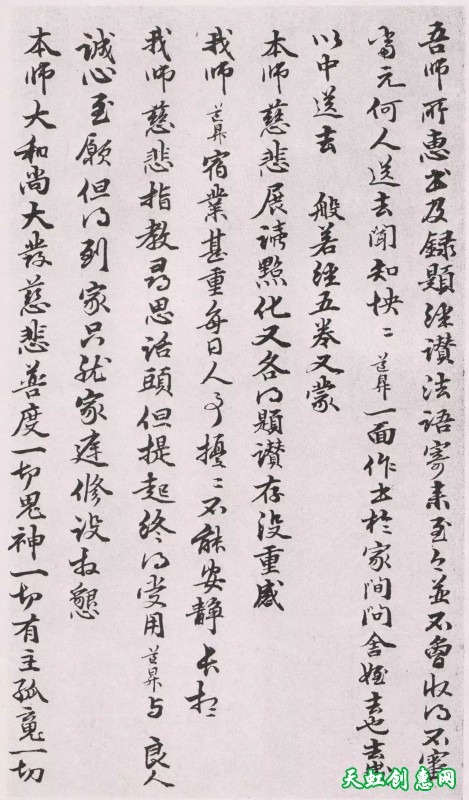 吾师所惠书及録题经讃法语寄来至今並不曾收得不審
當元何人送去闻知怏〻 孟昇一面作书於家间问舍姪去也去歲
以中送去 般若经五券又蒙
本师慈悲展誦點化又各得题讃存没重感
我师 孟昇宿業甚重每日人事擾〻不能安静
我师慈悲指教尋思话頭但提起终得受用 孟昇与 良人
誠心至願但得到家只就家庭修设拜懇
本师大和尚大發慈悲善度一切鬼神一切有主孤䰟一切
天虹创意网